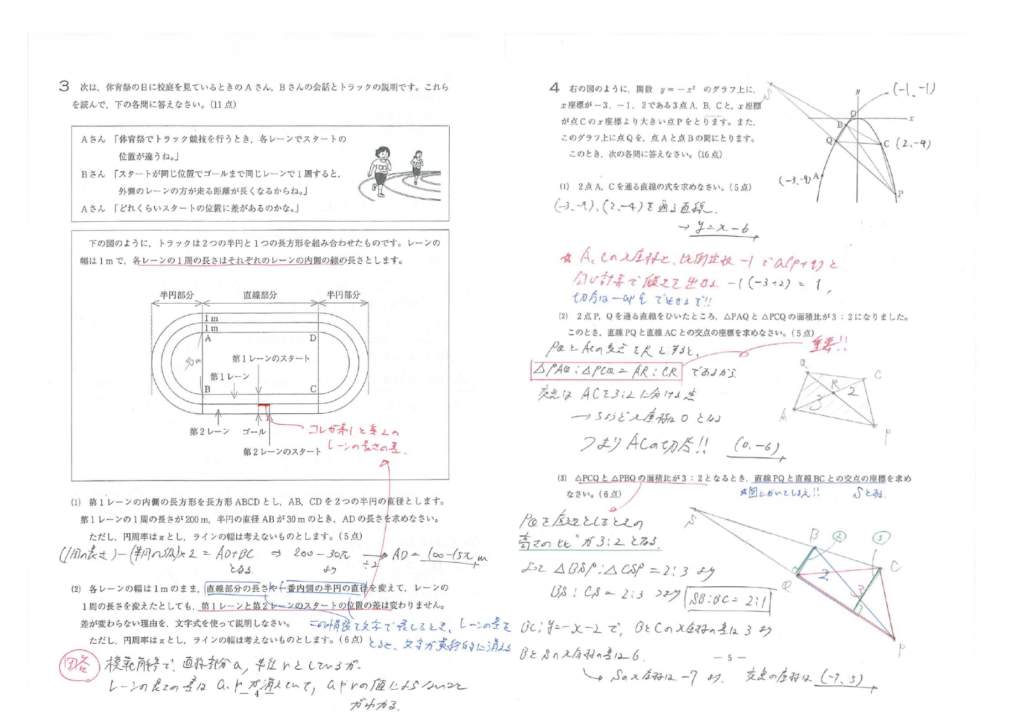 3 次は，体育祭の日に校庭を見ているときのAさん，Bさんの会話とトラックの説明です。これら
を読んで，下の各問に答えなさい。(11点)
Aさん「体育祭でトラック競技を行うとき，各レーンでスタートの
位置が違うね。」
Bさん「スタートが同じ位置でゴールまで同じレーンで1周すると，
外側のレーンの方が走る距離が長くなるからね。」
Aさん「どれくらいスタートの位置に差があるのかな。」
下の図のように，トラックは2つの半円と1つの長方形を組み合わせたものです。レーンの
幅は1mで，各レーンの1周の長さはそれぞれのレーンの内側の線の長さとします。
半円部分 直線部分 半円部分
1m
1m
A D
30m
第1レーンのスタート
第1レーン
B C
第2レーン ゴール
第2レーンのスタート
コレが第1と第2の
レーンの長さの差.
(1) 第1レーンの内側の長方形を長方形ABCDとし，AB，CDを2つの半円の直径とします。
第1レーンの1周の長さが200m，半円の直径ABが30mのとき，ADの長さを求めなさい。
ただし，円周率はπとし，ラインの幅は考えないものとします。(5点)
(1周の長さ)-(半円の弧)×2=AD+BC ⇒ 200-30π → AD=100-15π m
となる より ÷2
(2) 各レーンの幅は1mのまま，直線部分の長さや一番内側の半円の直径を変えて，レーンの
1周の長さを変えたとしても，第1レーンと第2レーンのスタートの位置の差は変わりません。
差が変わらない理由を，文字式を使って説明しなさい。
この情報を文字で表してとき，レーンの差を
ただし，円周率はπとし，ラインの幅は考えないものとします。(6点)
とると，文字が消える
回答 模範解答で，直線部分a，半径rとしているが
レーンの長さの差は a，rが消えていて，aやrの値によらないこと
がわかる.
- 4 -
4 右の図のように，関数 y=-x² のグラフ上に，
x座標が-3，-1，2である3点A，B，Cと，x座標
が点Cのx座標より大きい点Pをとります。また，
このグラフ上に点Qを，点Aと点Bの間にとります。
このとき，次の各問に答えなさい。(16点)
S y (-1,-1)
O x
B
Q C (2,-4)
(-3,-9) A
P
(1) 2点A，Cを通る直線の式を求めなさい。(5点)
(-3,-9)，(2,-4)を通る直線.
→ y=x-6
★ A，Cのx座標と，比例定数 -1 で a(p+q) と
傾きを出せる -1(-3+2)=1，
切片は -apq で出せる!!
(2) 2点P，Qを通る直線をひいたところ，△PAQと△PCQの面積比が3：2になりました。
このとき，直線PQと直線ACとの交点の座標を求めなさい。(5点)
PQとACの交点をRとすると， 重要!!
△PAQ：△PCQ=AR：CR であるから
交点は ACを3：2に分ける点
→ x座標は0となる
つまりACの切片!! (0,-6)
Q C
R
3 2
A P
(3) △PCQと△PBQの面積比が3：2となるとき，直線PQと直線BCとの交点の座標を求め
なさい。(6点) Sとする
PQを底辺としたときの
高さの比が3：2となる.
よって △BSP：△CSP=2：3 より
BS：CS=2：3 つまり SB：BC=2：1
BC：y=-x-2 で，BとCのx座標の差は3より
BとSのx座標の差は6.
→ Sのx座標は-7より，交点の座標は (-7,5)
S
B ② ③ C
2 3
Q
P
- 5 -